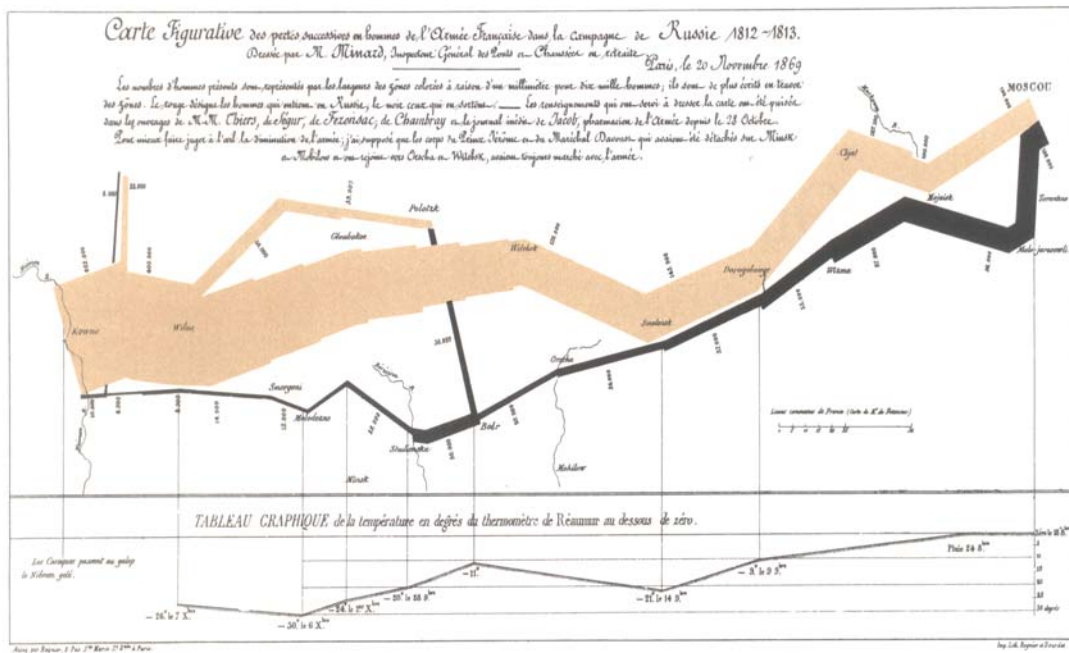 Carte Figurative des pertes successives en hommes de l'Armée Française dans la campagne de Russie 1812~1813.
Dressée par M. Minard, Inspecteur Général des Ponts et Chaussées en retraite
Paris, le 20 Novembre 1869
Les nombres d'hommes présents sont représentés par les largeurs des zônes colorées à raison d'un millimètre pour dix mille hommes; ils sont de plus écrits en travers
des zônes. Le rouge désigne les hommes qui entrent en Russie, le noir ceux qui en sortent. Les renseignements qui ont servi à dresser la carte ont été puisés
dans les ouvrages de M.M. Thiers, de Ségur, de Fezensac, de Chambray et le journal inédit de Jacob, pharmacien de l'Armée depuis le 28 Octobre.
Pour mieux faire juger à l'œil la diminution de l'armée, j'ai supposé que les corps du Prince Jérôme et du Maréchal Davoust qui avaient été détachés sur Minsk
et Mohilow et ont rejoint vers Orscha et Witebsk, avaient toujours marché avec l'armée.
MOSCOU
100,000
100,000
Chjat
Mojaisk
Tarantino
Malo-jarosewli
Wizma
Dorogobouge
Smolensk
Witebsk
Polotzk
Gloubokoe
Wilna
Kowno
Smorgoni
Molodezno
Studienska
Bobr
Orscha
Mohilow
Minsk
Lieues communes de France (Carte de M. de Fezensac)
TABLEAU GRAPHIQUE de la température en degrés du thermomètre de Réaumur au dessous de zéro.
Les Cosaques passent au galop
le Niémen gelé.
Zéro le 18 8.bre
Pluie 24 8.bre
- 9.° le 9 9.bre
- 21.° le 14 9.bre
- 11.°
- 20.° le 28 9.bre
- 24.° le 1.er X.bre
- 30.° le 6 X.bre
- 26.° le 7 X.bre
30 degrés
Autog. par Regnier, 8. Pas. S.te Marie S.t G.ain à Paris.
Imp. Lith. Regnier et Dourdet